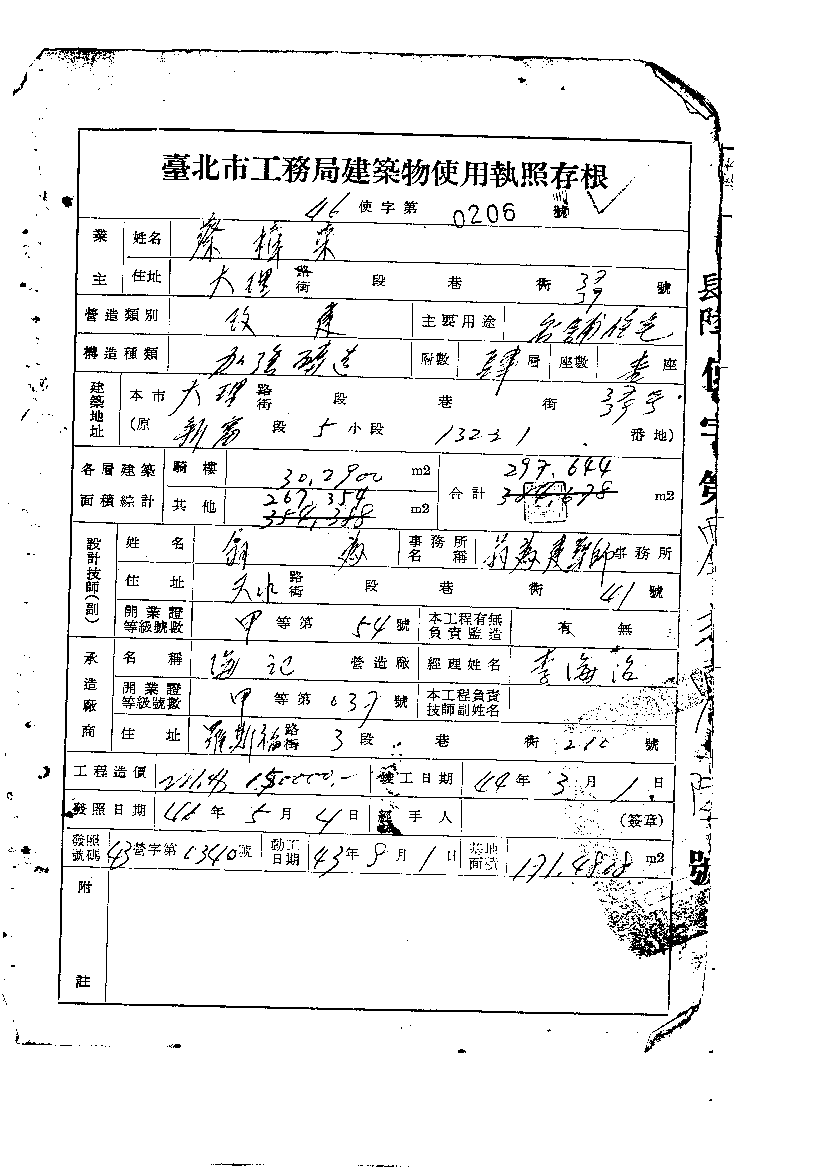 臺北市工務局建築物使用執照存根
46 使字第 0206 號
業主 姓名
住址 大理 路街 段 巷 衖 號
營造類別 改建 主要用途 住宅
構造種類 加強磚造 階數 肆 層 座數 壹 座
建築地址 本市 大理 路街 段 巷 衖
(原 新富 段 5 小段 132之1 番地)
各層建築面積綜計 騎樓 30.2900 m2 合計 297.644 m2
其他 267.354 m2
設計技師(副) 姓名 事務所名稱 建築師 事務所
住址 天水 路街 段 巷 衖 41 號
開業證等級號數 甲 等第 54 號 本工程有無負責監造 有 無
承造廠商 名稱 海記 營造廠 經理姓名 李海
開業證等級號數 甲 等第 037 號 本工程負責技師副姓名
住址 羅斯福 路街 3 段 巷 衖 210 號
工程造價 竣工日期 44 年 3 月 1 日
發照日期 46 年 5 月 4 日 經手人 (簽章)
發照號碼 43 營字第 0340 號 動工日期 43 年 9 月 1 日 基地面積 171.4808 m2
附註
長陸使字第
號